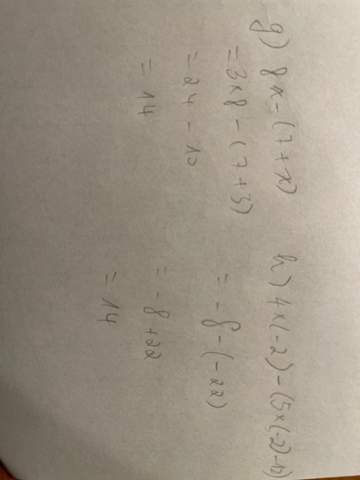 g) 8x - (7+x)
= 3×8 - (7+3)
= 24 - 10
= 14
h) 4×(-2) - (5×(-2)-12)
= -8 - (-22)
= -8 + 22
= 14